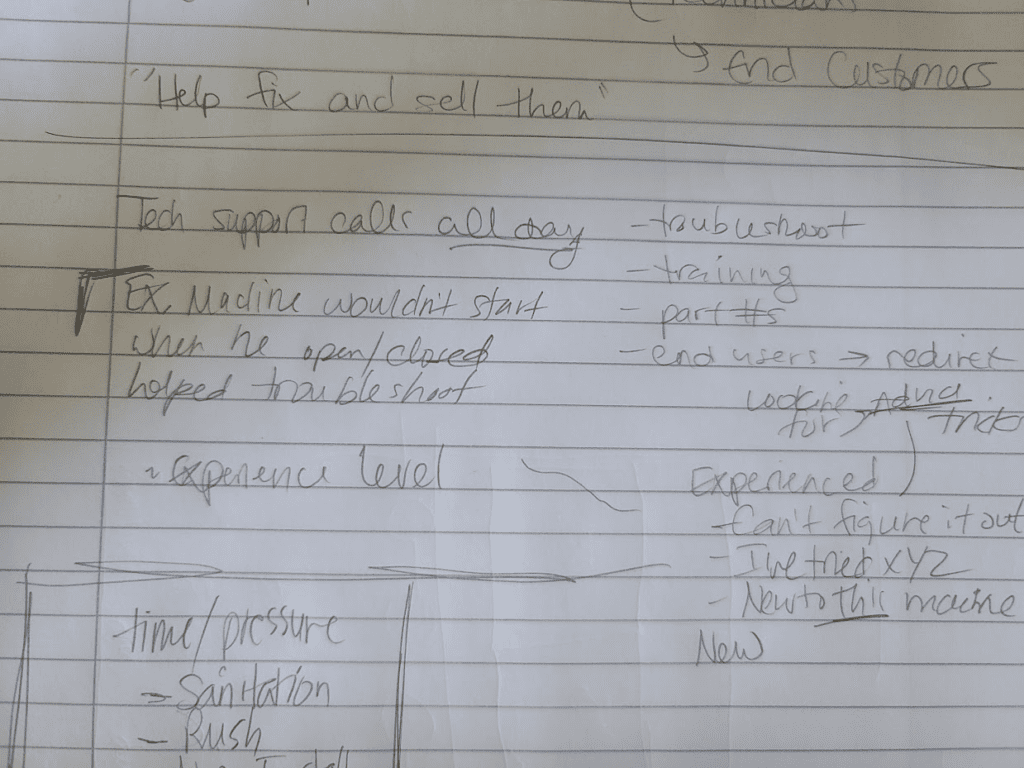 Technicians
↳ End Customers
"Help fix and sell them"
Tech support calls all day
- troubleshoot
- training
- part #s
- end users → redirect
Ex. Machine wouldn't start
when he open/closed
helped troubleshoot
Looking
for tricks
~ Experience level
Experienced
- Can't figure it out
- I've tried XYZ
- New to this macine
New
time/pressure
- Sanitation
- Rush